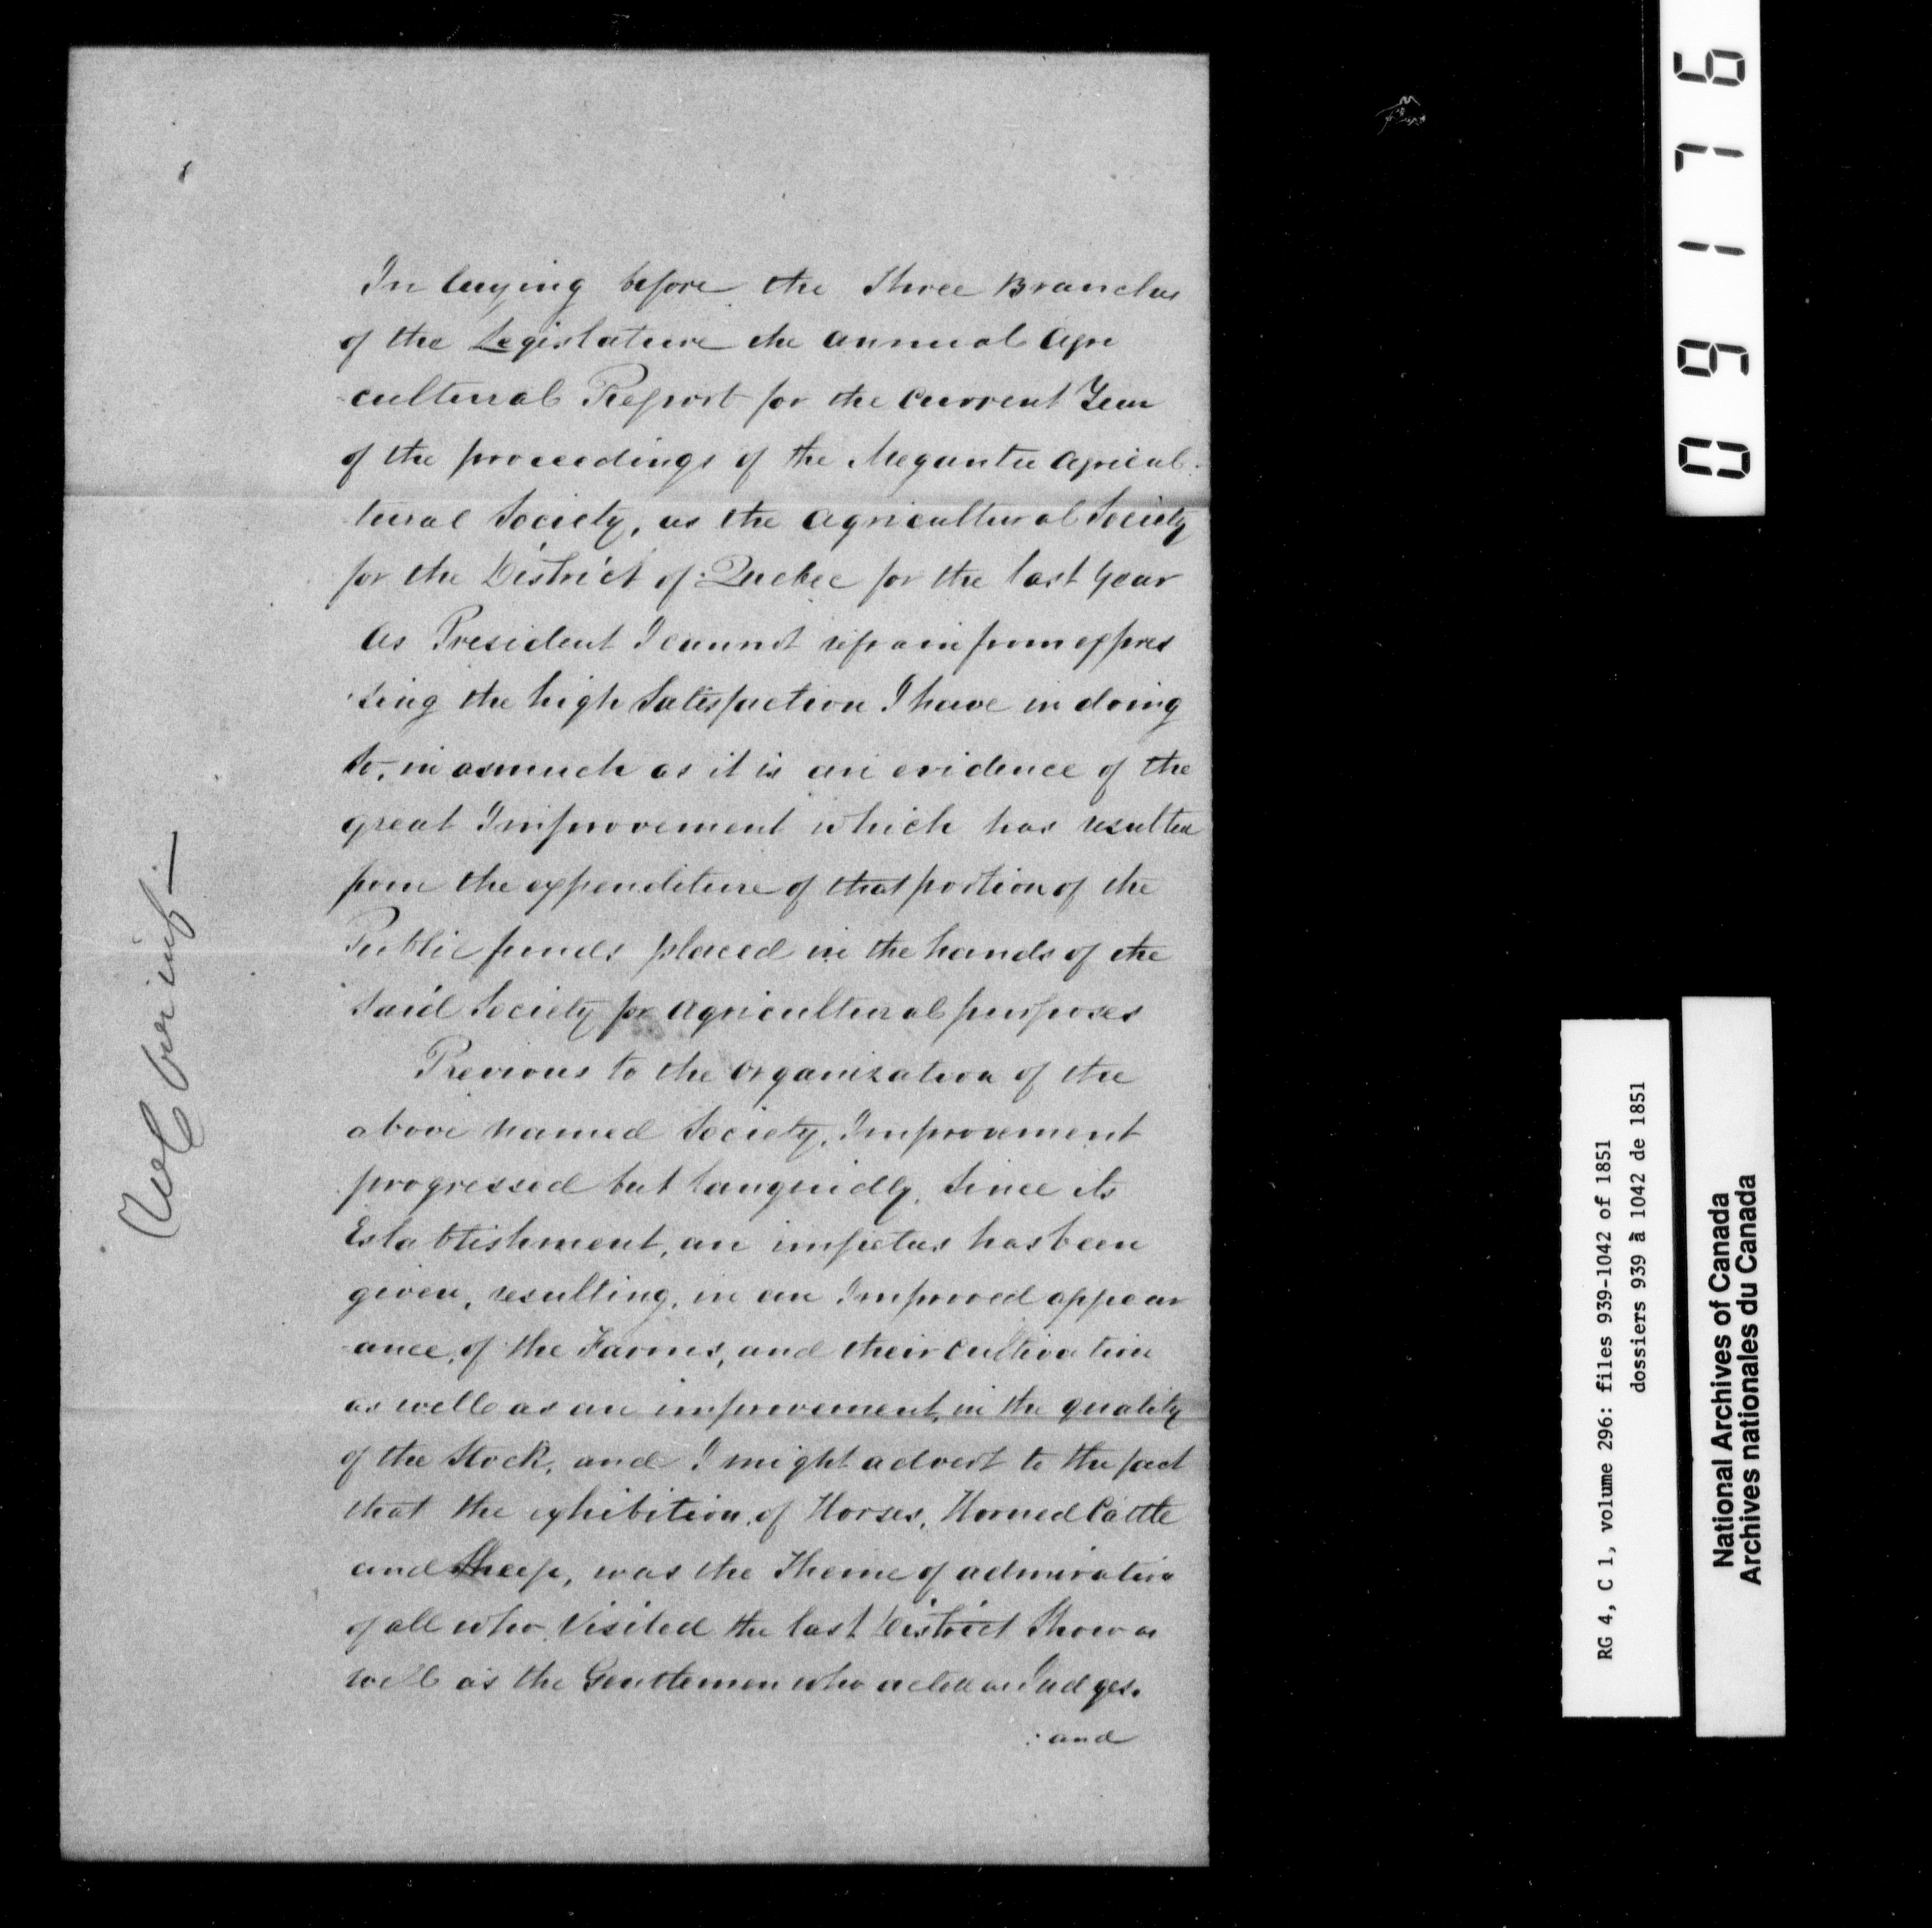 In laying before the three Branches
of the Legislature the annual Agri
cultural Report for the current Year
of the proceedings of the Megantic Agricul-
tural Society, as the Agricultural Society
for the District of Quebec for the last Year
As President I cannot refrain from expres
sing the high Satisfaction I have in doing
so, in asmuch as it is an evidence of the
great Improvement which has resulted
from the expenditure of that portion of the
Public funds placed in the hands of the
said Society for Agricultural purposes
Previous to the organization of the
above named Society, Improvement
progressed but languidly, Since its
Establishment, an impetus has been
given, resulting, in an Improved appear
ance, of the Farms, and their cultivation
as well as an improvement, in the quality
of the Stock, and I might advert to the fact
that the exhibition, of Horses, Horned Cattle
and Sheep, was the Theme of admiration
of all who Visited the last District Show as
well as the Gentlemen who acted as Judges.
: and
091176
RG 4, C 1, volume 296: files 939-1042 of 1851
dossiers 939 à 1042 de 1851
National Archives of Canada
Archives nationales du Canada